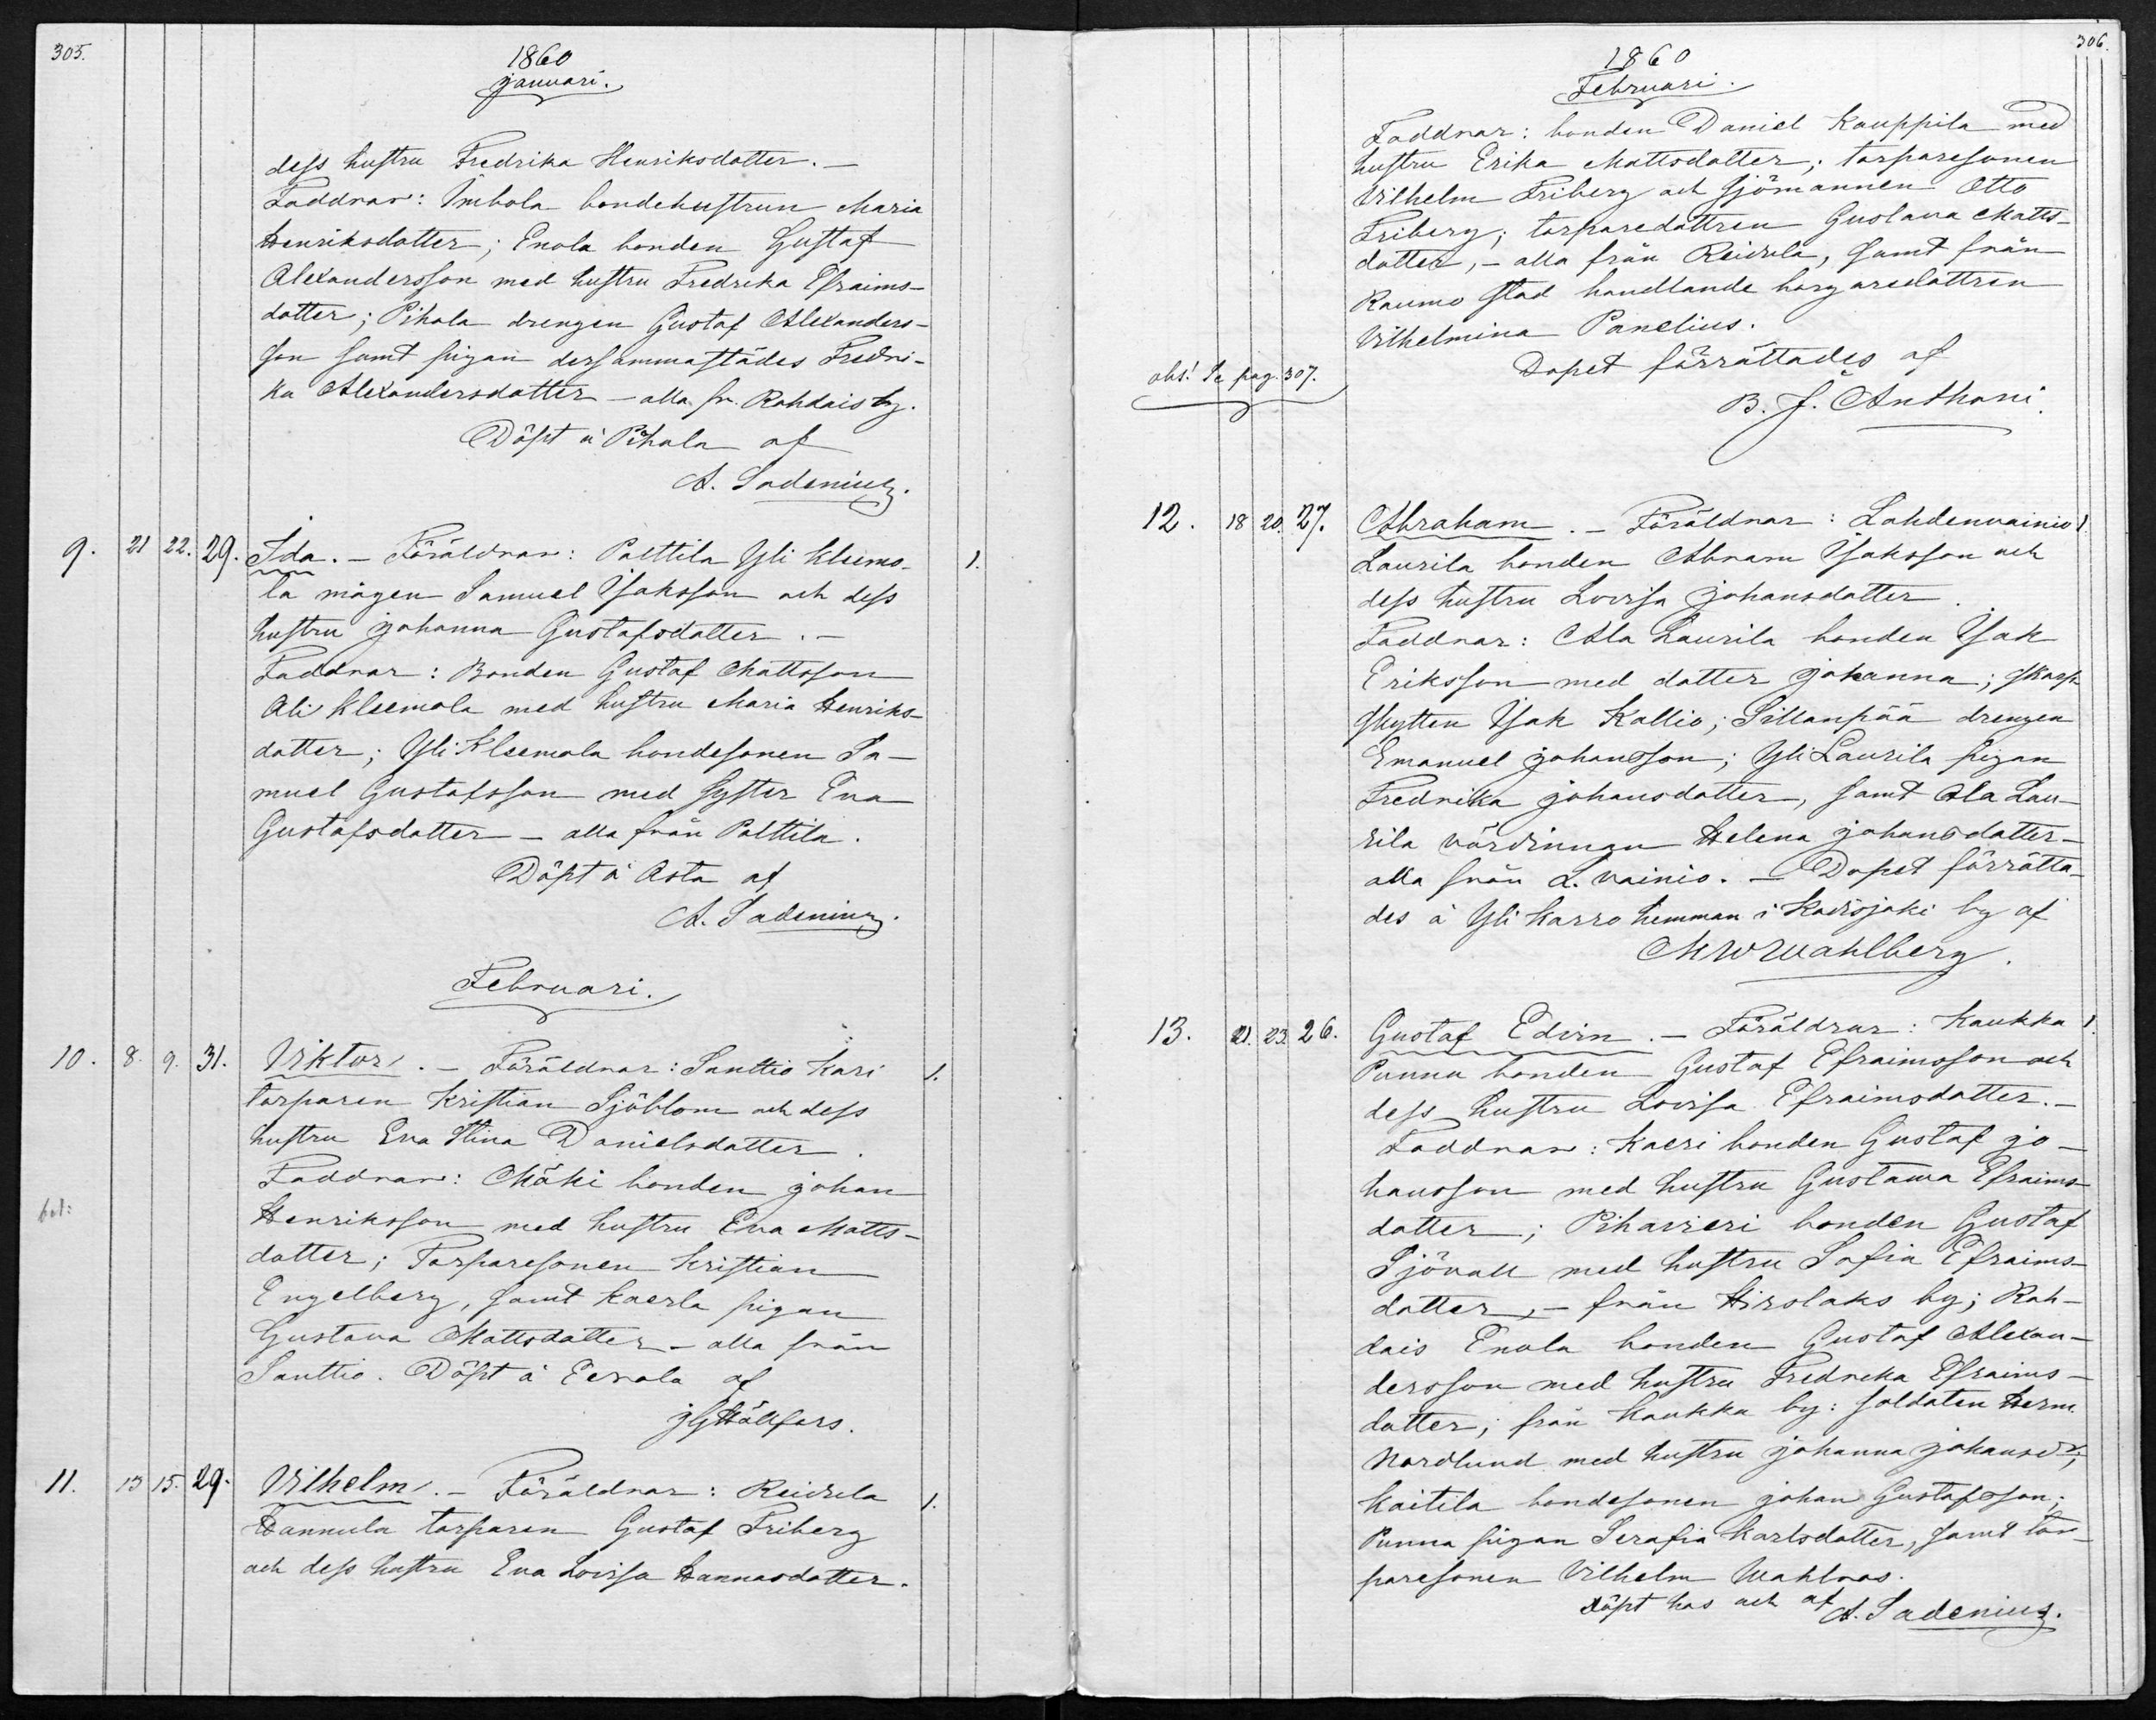 305.
1860
Januari.
dess hustru Fredrika Henriksdotter. –
Faddrar: Imbola bondehustrun Maria
Henriksdotter; Enola bonden Gustaf
Alexandersson med hustru Fredrika Efraims-
dotter; Pihala drengen Gustaf Alexanders-
son samt pigan dersammastädes Fredri-
ka Alexandersdotter – alla fr. Rahdais by.
Döpt å Pihala af
A. Sadenius.
9. 21 22. 29. Ida. – Föräldrar: Palttila Yli Kleemo- 1.
la mågen Samuel Isaksson och dess
hustru Johanna Gustafsdotter. –
Faddrar: Bonden Gustaf Mattsson
Ali Kleemola med hustru Maria Henriks-
dotter; Yli Kleemola bondesonen Sa-
muel Gustafsson med syster Eva
Gustafsdotter – alla från Palttila.
Döpt å Asta af
A. Sadenius.
Februari.
10. 8. 9. 31. Viktor. – Föräldrar: Santtio Kari 1.
torparen Kristian Sjöblom och dess
hustru Eva Stina Danielsdotter.
Faddrar: Mäki bonden Johan
Henriksson med hustru Eva Matts-
dotter; Torparesonen Kristian
Engelberg, samt Kaerla pigan
Gustava Mattsdotter – alla från
Santtio. Döpt å Eerola af
JG Hällfors.
11. 13 15. 29. Vilhelm. – Föräldrar: Reidula 1.
Hannula torparen Gustaf Friberg
och dess hustru Eva Lovisa Hannasdotter.
306.
1860
Februari.
Faddrar: bonden Daniel Kauppila med
hustru Erika Mattsdotter; torparesonen
Vilhelm Friberg och sjömannen Otto
Friberg; torparedottren Gustava Matts-
dotter, – alla från Reidula, samt från
Raumo stad handlande borgaredottren
Vilhelmina Panelius.
Dopet förrättades af
obs! Se pag. 307.
B. J. Anthoni.
12. 18 20. 27. Abraham. – Föräldrar: Lahdenvainio 1.
Laurila bonden Abram Isaksson och
dess hustru Lovisa Johansdotter.
Faddrar: Ala Laurila bonden Isak
Eriksson med dotter Johanna; skarp-
skytten Isak Kallio; Sillanpää drengen
Emanuel Johansson; Yli Laurila pigan
Fredrika Johansdotter, samt Ala Lau-
rila värdinnan Helena Johansdotter –
alla från L. vainio. – Dopet förrätta-
des å Yli Karro hemman i Kairisjoki by af
MW Wahlberg.
13. 21. 23. 26. Gustaf Edvin. – Föräldrar: Kaukka 1.
Punna bonden Gustaf Efraimsson och
dess hustru Lovisa Efraimsdotter. –
Faddrar: Kaeri bonden Gustaf Jo-
hansson med hustru Gustawa Efraims-
dotter; Pihavieri bonden Gustaf
Sjövall med hustru Sofia Efraims-
dotter, – från Hirslaks by; Rah-
dais Enola bonden Gustaf Alexan-
dersson med hustru Fredrika Efraims-
dotter; från Kaukka by: soldaten Herm.
Nordlund med hustru Johanna Johansdr;
Kaitila bondesonen Johan Gustafsson;
Punna pigan Serafia Karlsdotter, samt tor-
paresonen Vilhelm Wahlroos.
Döpt hos och af A. Sadenius.